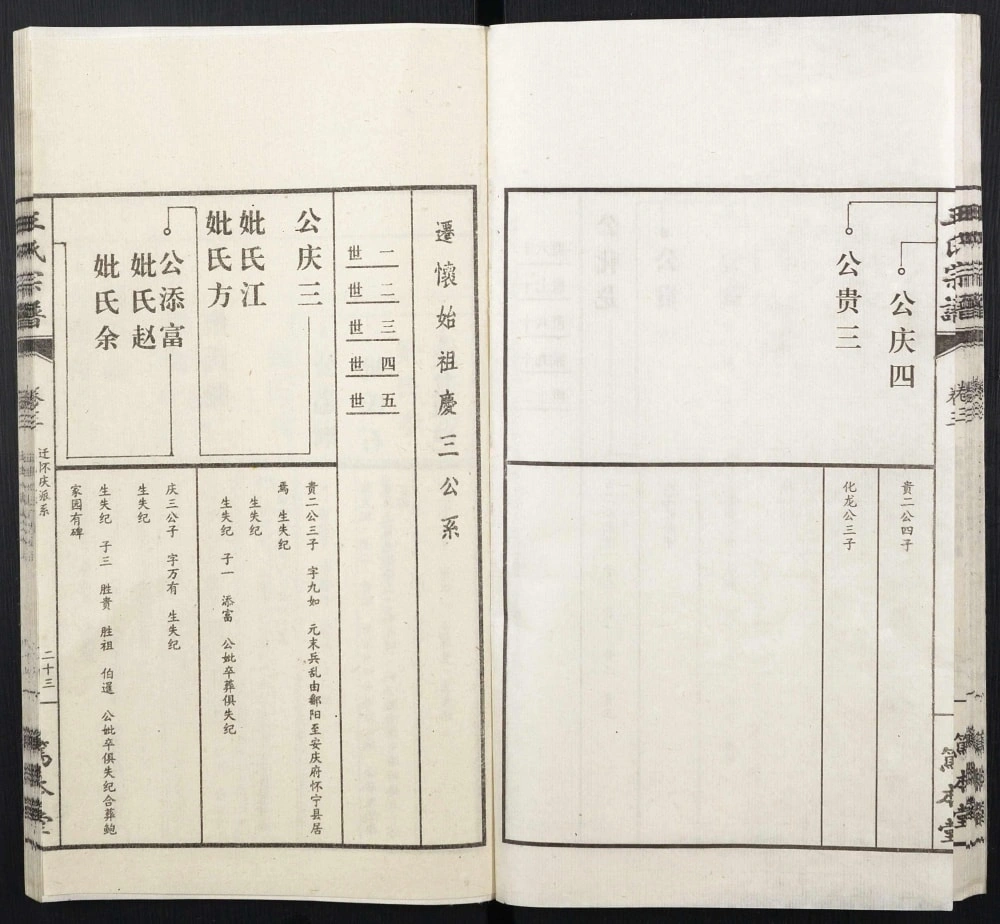 王氏宗谱
卷三
笃本堂
公庆四
贵二公四子
公贵三
化龙公三子
遷懷始祖慶三公系
一世
二世
三世
四世
五世
公庆三
贵一公三子 字九如 元末兵乱由鄱阳至安庆府怀宁县居
焉 生失纪
妣氏江
生失纪
妣氏方
生失纪 子一 添富 公妣卒葬俱失纪
公添富
庆三公子 字万有 生失纪
妣氏赵
生失纪
妣氏余
生失纪 子三 胜贵 胜祖 伯暹 公妣卒俱失纪合葬鲍
家园有碑
王氏宗谱
卷三
迁怀庆派系
二十三
笃本堂